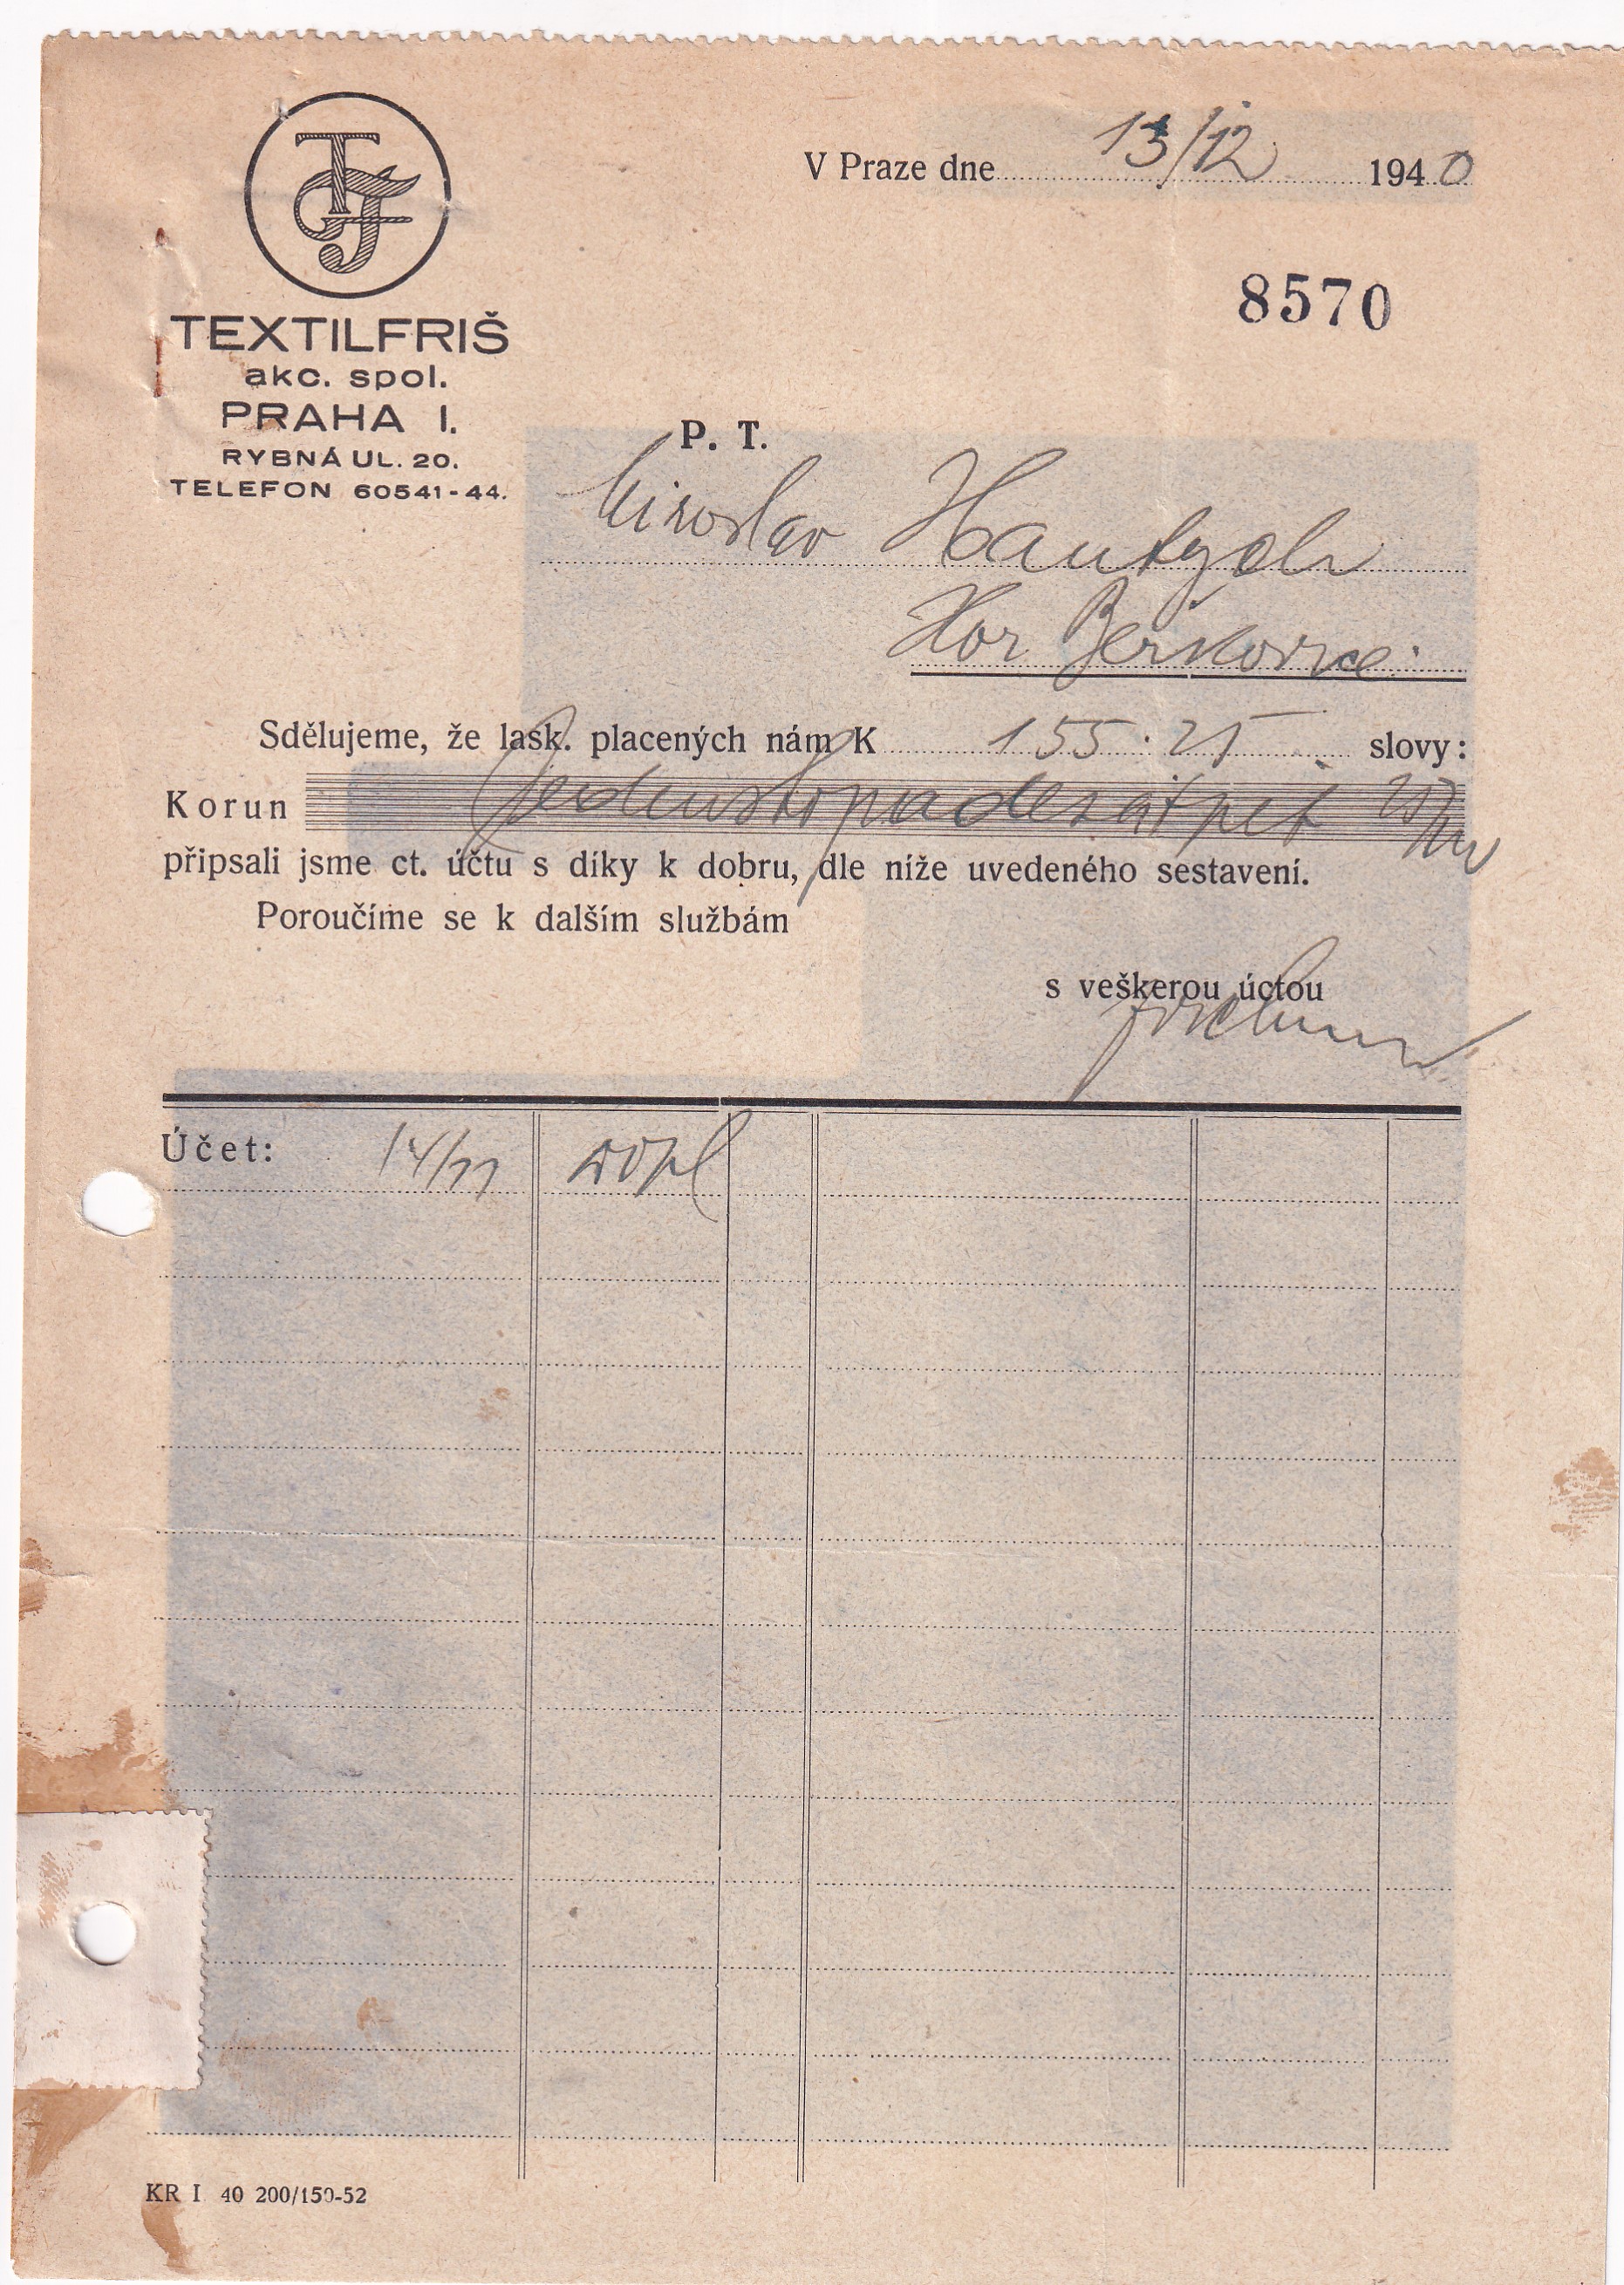 TF
V Praze dne 13/12 1940
8570
TEXTILFRIŠ
akc. spol.
PRAHA I.
RYBNÁ UL. 20.
TELEFON 60541-44.
P. T.
Miroslav Hautych
Hor Beřkovice
Sdělujeme, že lask. placených nám K 155.25 slovy:
Korun Jednostopadesátpět
připsali jsme ct. účtu s díky k dobru, dle níže uvedeného sestavení.
Poroučíme se k dalším službám
s veškerou úctou
Účet: 14/11 dopl
KR I 40 200/150-52